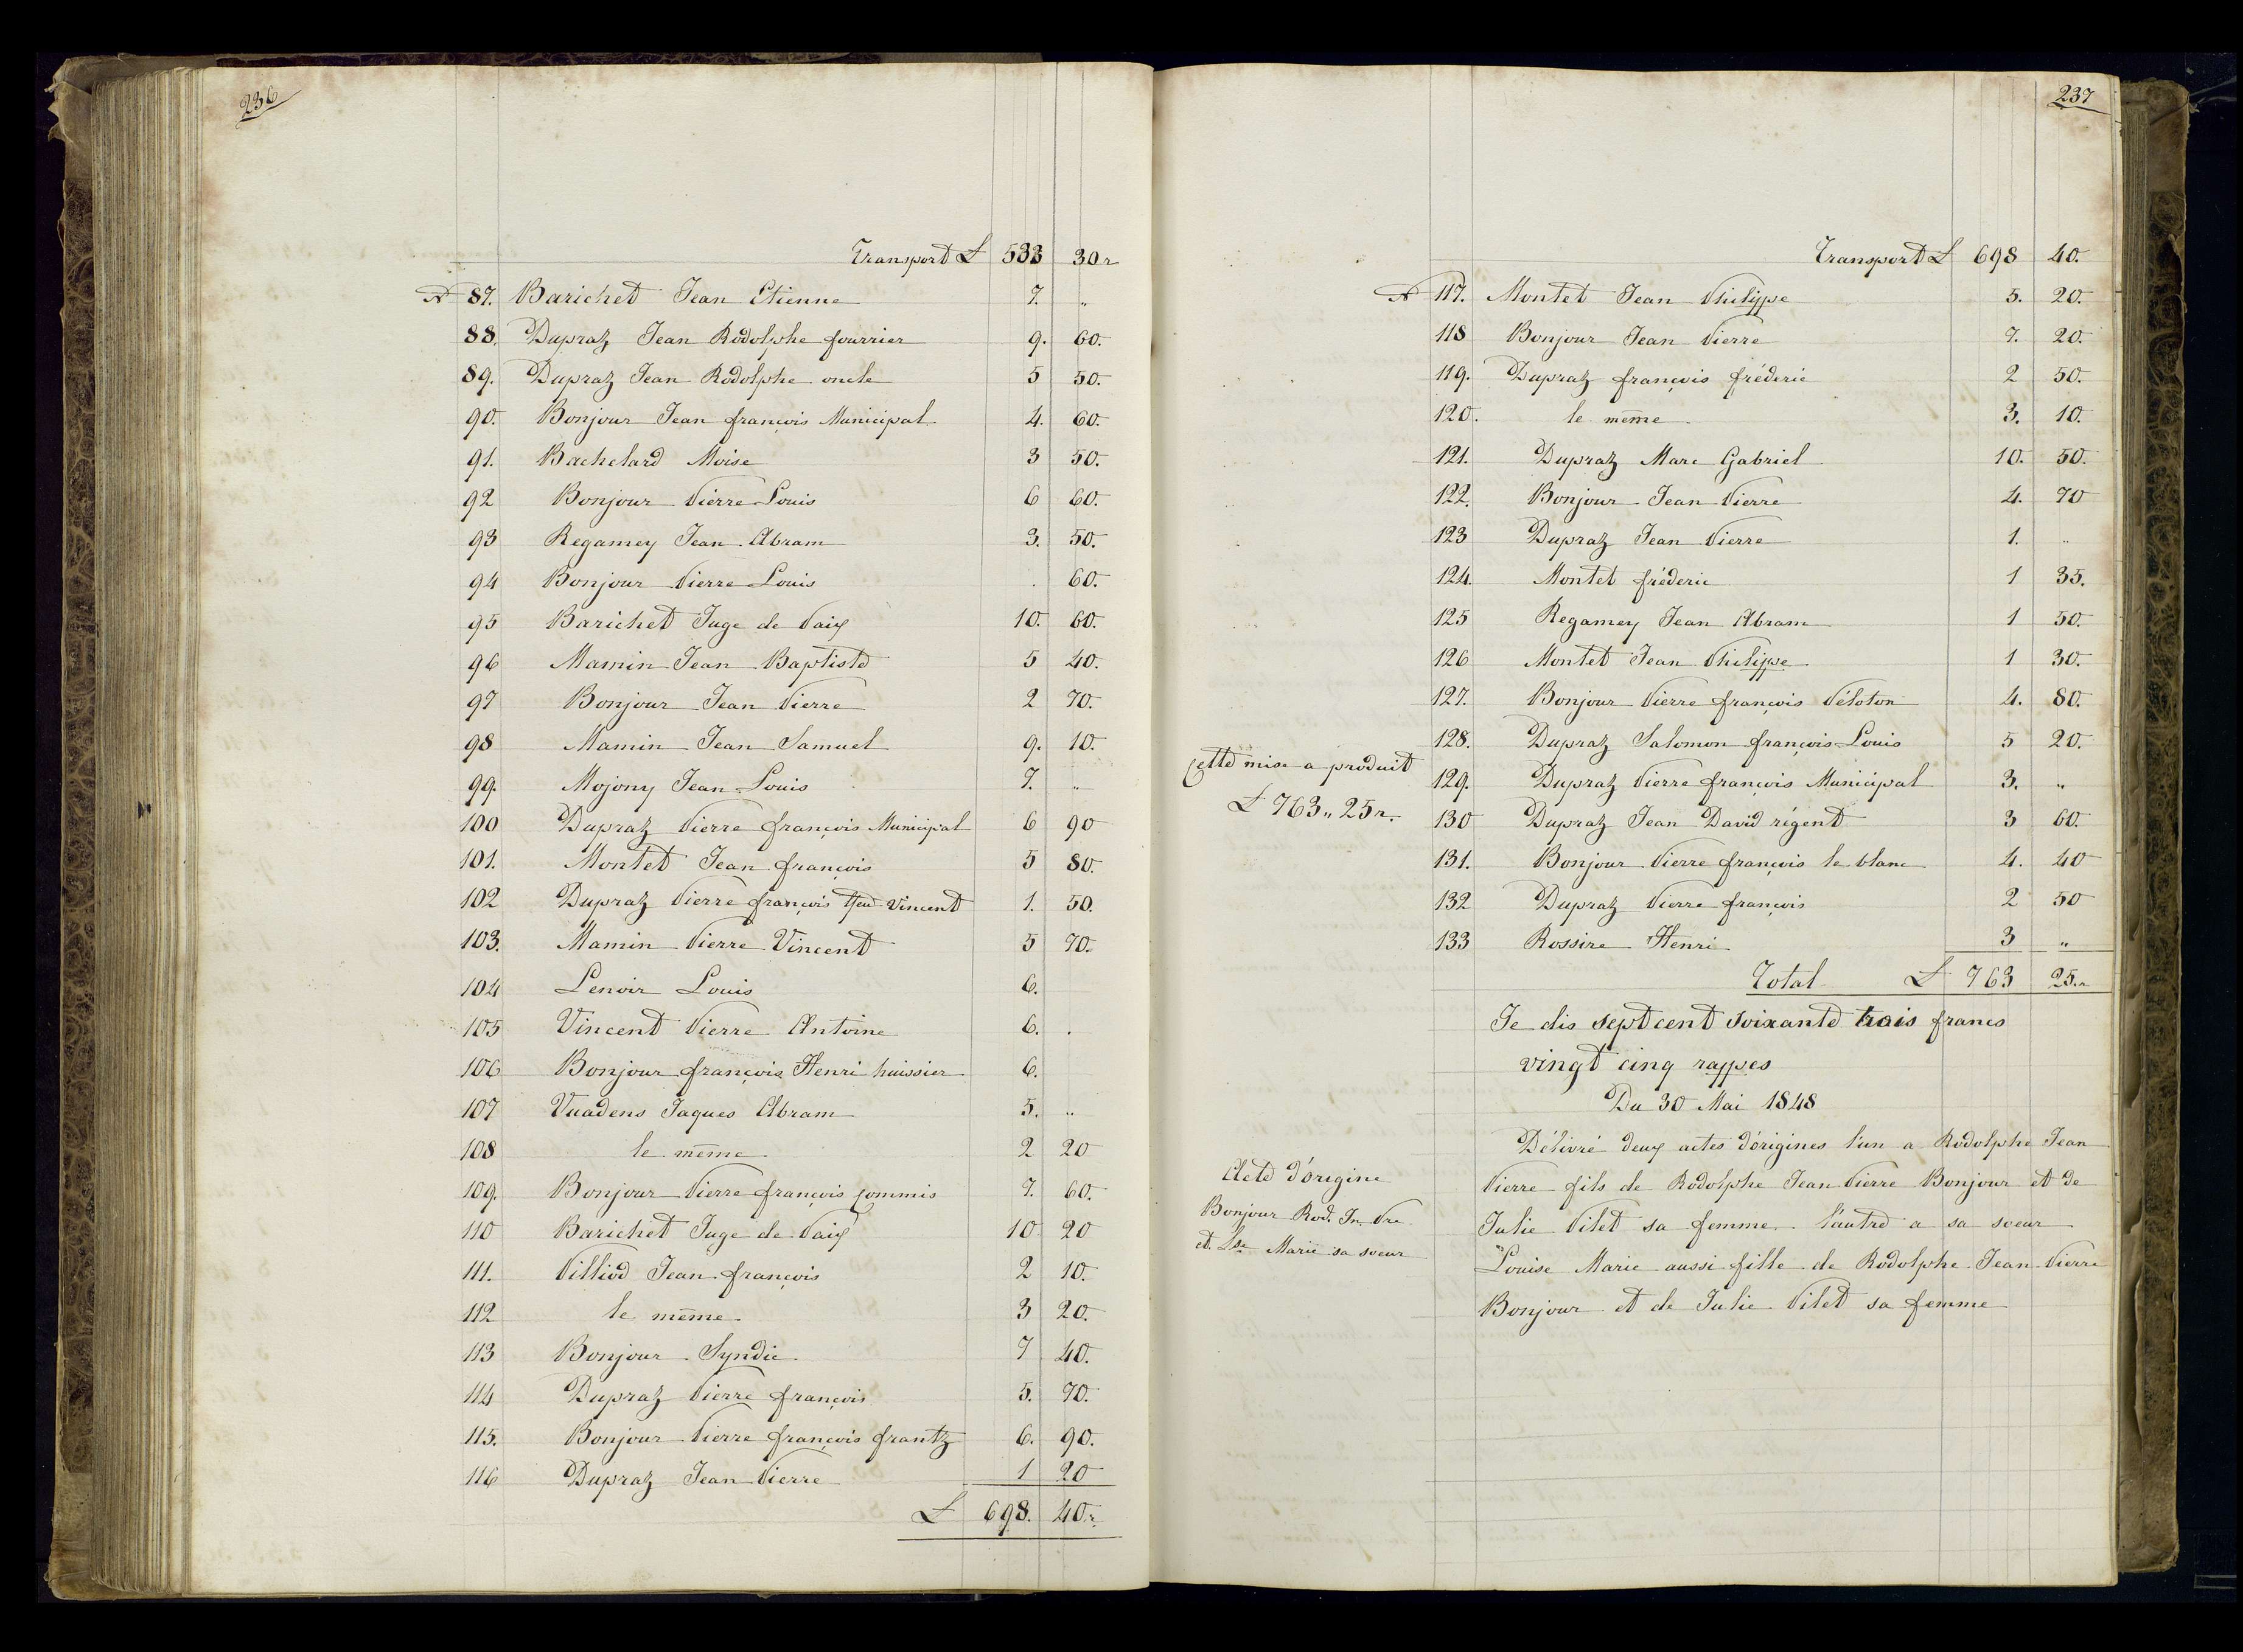 236
Transport £ 533 30 r
N 87. Barichet Jean Etienne 7. "
88. Dupraz Jean Rodolphe fourrier 9. 60.
89. Dupraz Jean Rodolphe oncle 5 50.
90. Bonjour Jean françois Municipal 4. 60.
91. Bachelard Moise 3 50.
92 Bonjour Pierre Louis 6 60.
93 Regamey Jean Abram 3. 50.
94 Bonjour Pierre Louis . 60.
95 Barichet Juge de Paix 10. 60.
96 Mamin Jean Baptiste 5 40.
97 Bonjour Jean Pierre 2 70.
98 Mamin Jean Samuel 9. 10.
99. Mojony Jean Louis 7. "
100 Dupraz Pierre françois Municipal 6 90
101. Montet Jean françois 5 80.
102 Dupraz Pierre françois ffeu Vincent 1. 50.
103. Mamin Pierre Vincent 5 70.
104 Lenoir Louis 6.
105 Vincent Pierre Antoine 6. .
106 Bonjour françois Henri huissier 6.
107 Vuadens Jaques Abram 5. "
108 le même 2 20
109. Bonjour Pierre françois Commis 7. 60.
110 Barichet Juge de Paix 10 20
111. Pilliod Jean françois 2 10.
112 le même 3 20.
113 Bonjour Syndic 7 40.
114 Dupraz Pierre françois 5. 70.
115. Bonjour Pierre françois frantz 6. 90.
116 Dupraz Jean Pierre 1 20
£ 698. 40 r.
237
Transport £ 698 40.
N 117. Montet Jean Philippe 5. 20.
118 Bonjour Jean Pierre 7. 20.
119. Dupraz françois fréderic 2 50.
120. le même 3. 10.
121. Dupraz Marc Gabriel 10. 50.
122. Bonjour Jean Pierre 4. 70
123 Dupraz Jean Pierre 1. "
124. Montet fréderic 1 35.
125 Regamey Jean Abram 1 50.
126 Montet Jean Philippe 1 30.
127. Bonjour Pierre françois Péloton 4. 80.
128. Dupraz Salomon françois Louis 5 20.
Cette mise a produit
£ 763 „ 25 r.
129. Dupraz Pierre françois Municipal 3. "
130 Dupraz Jean David régent 3 60.
131. Bonjour Pierre françois le blanc 4. 40
132 Dupraz Pierre françois 2 50
133 Rossire Henri 3 "
Total £ 763 25. r
Je dis sept cent soixante trois francs
vingt cinq rappes
Du 30 Mai 1848
Acte d'origine
Bonjour Rod. Jn. Pre
et Lse Marie sa soeur
Délivré deux actes d'origines l'un a Rodolphe Jean
Pierre fils de Rodolphe Jean Pierre Bonjour et de
Julie Pilet sa femme. l'autre a sa soeur
Louise Marie aussi fille de Rodolphe Jean Pierre
Bonjour et de Julie Pilet sa femme